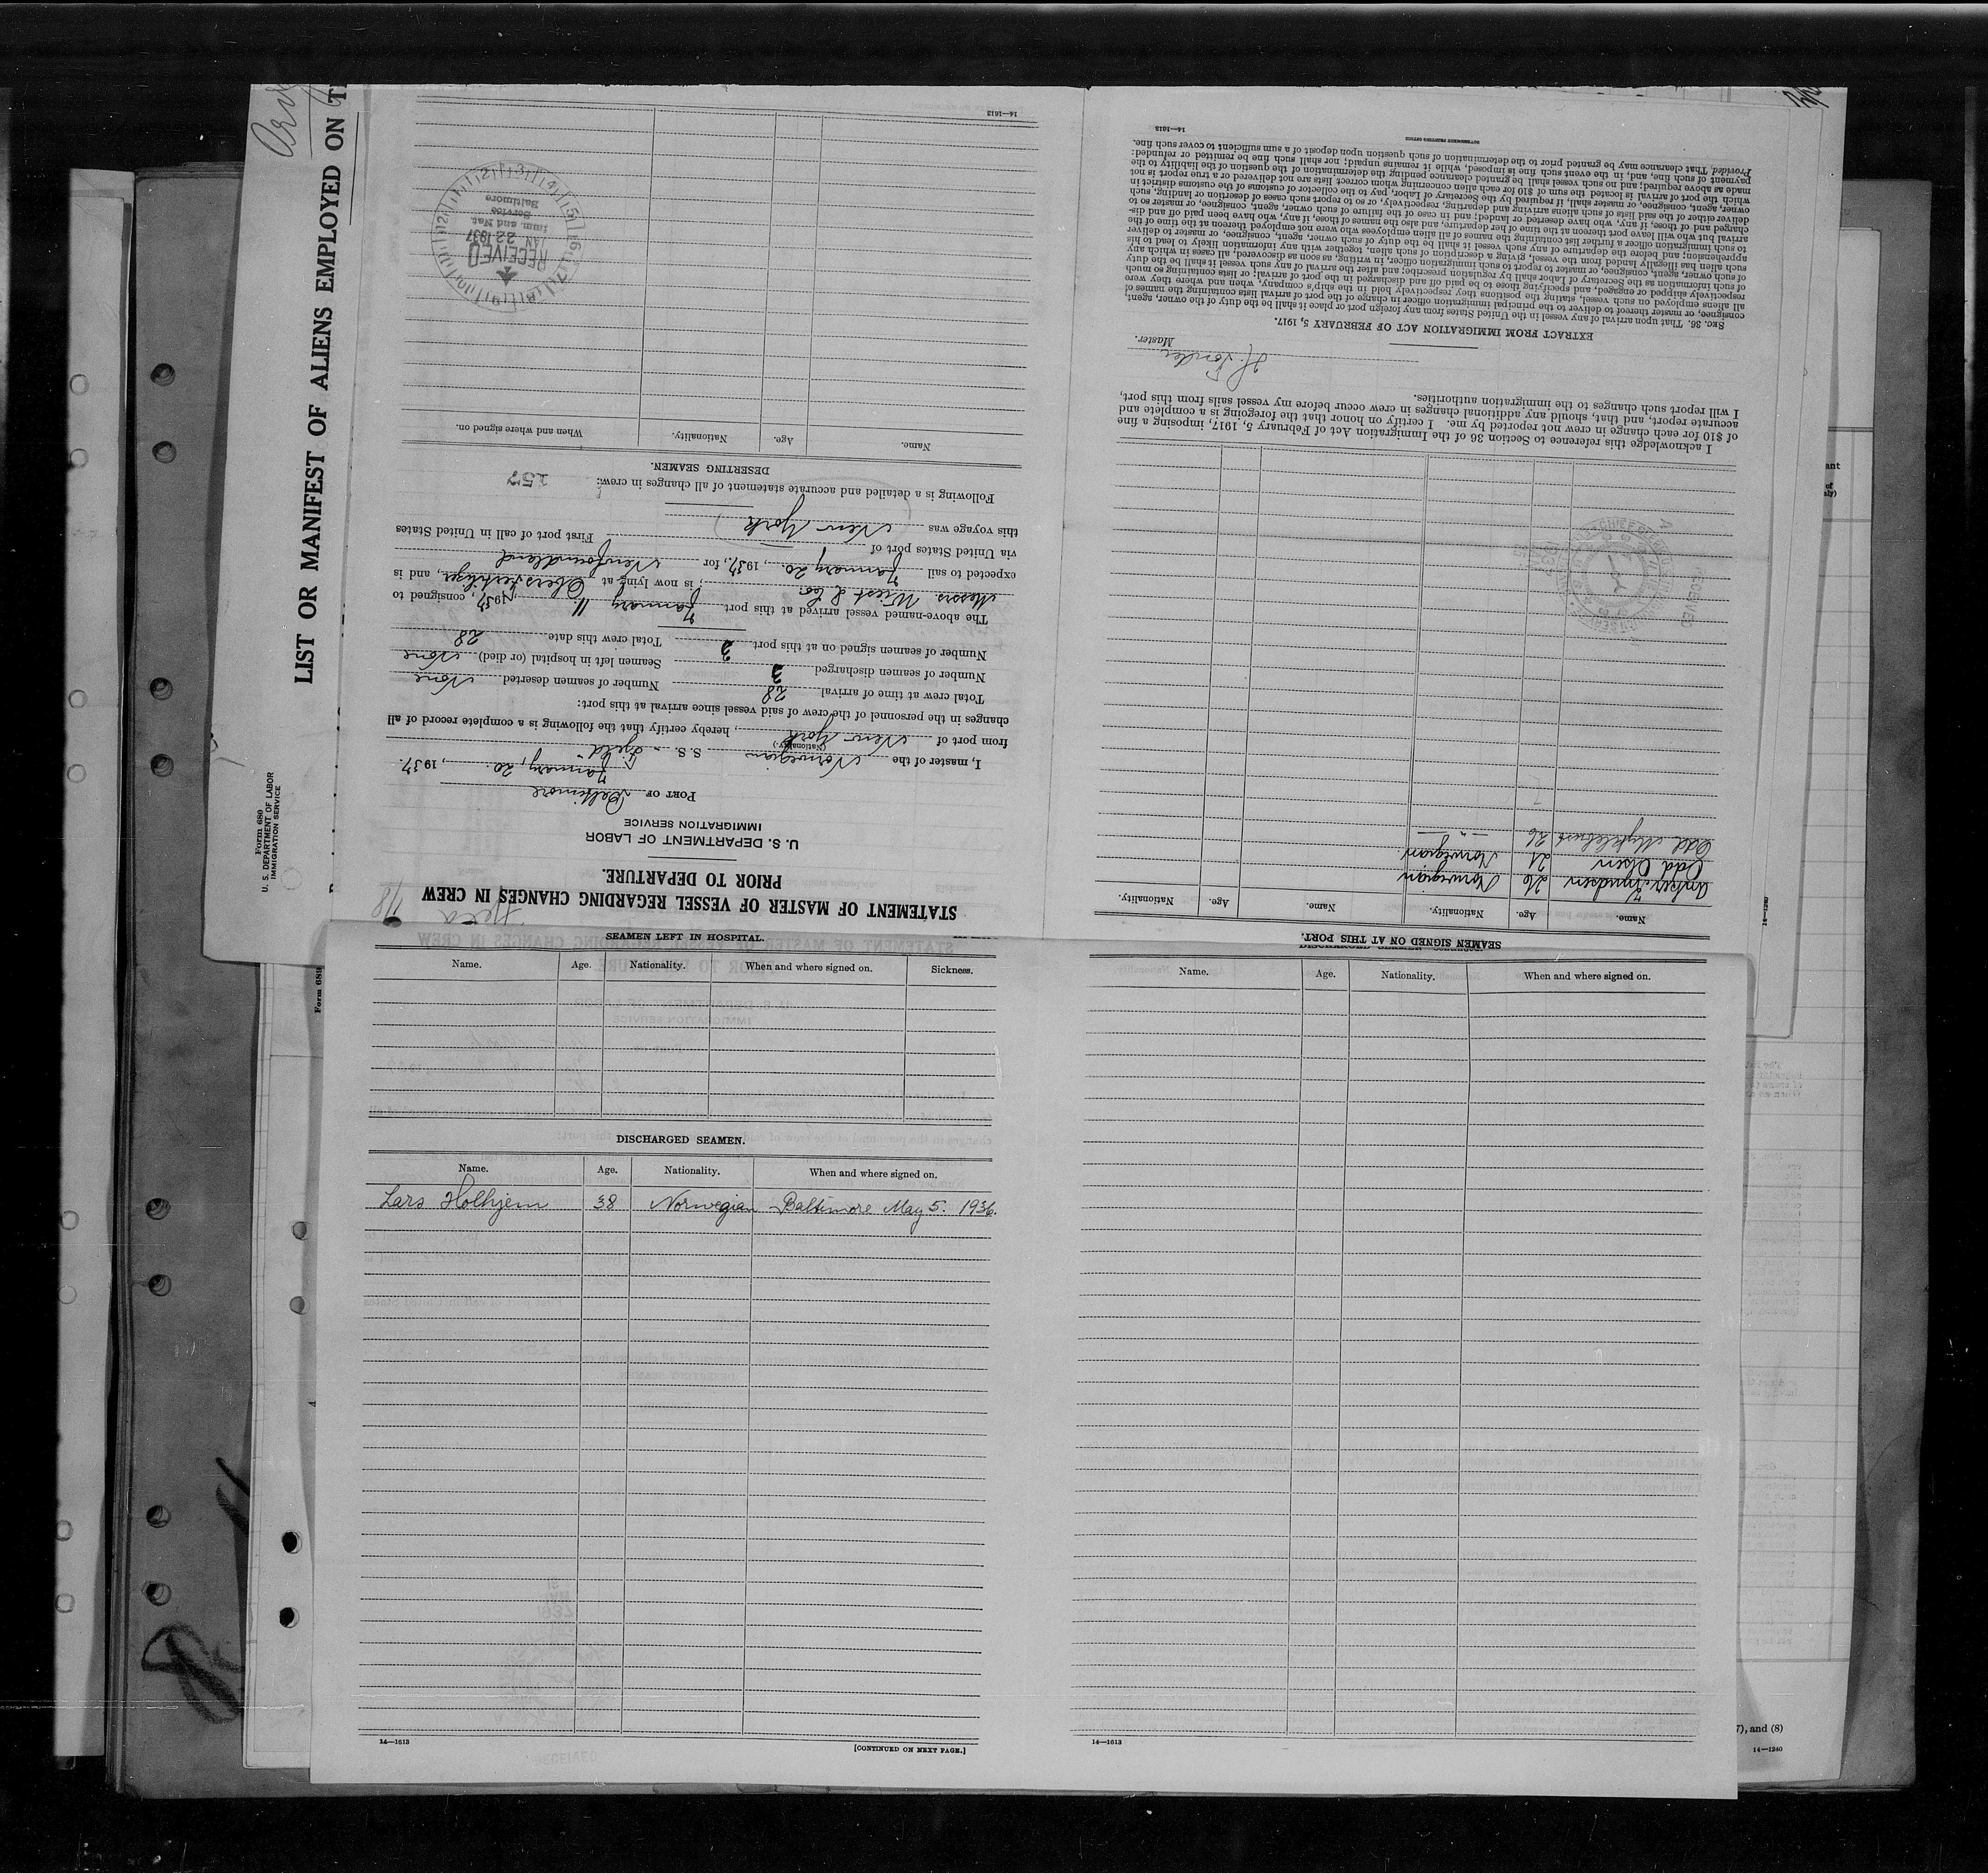 LIST OR MANIFEST OF ALIENS EMPLOYED ON
Form 680
U. S. DEPARTMENT OF LABOR
IMMIGRATION SERVICE
Form 689
STATEMENT OF MASTER OF VESSEL REGARDING CHANGES IN CREW
PRIOR TO DEPARTURE.
U. S. DEPARTMENT OF LABOR
IMMIGRATION SERVICE
PORT OF Baltimore
January, 20., 1937.
I, master of the Norwegian S. S. "Fjeld"
(Nationality.)
from port of New York, hereby certify that the following is a complete record of all
changes in the personnel of the crew of said vessel since arrival at this port:
Total crew at time of arrival 28 Number of seamen deserted None
Number of seamen discharged 3 Seamen left in hospital (or died) None
Number of seamen signed on at this port 3 Total crew this date 28
The above-named vessel arrived at this port January 11, 1937, consigned to
Messrs ; is now lying at , and is
expected to sail January 20., 1937, for Newfoundland
via United States port of
First port of call in United States
this voyage was New York
Following is a detailed and accurate statement of all changes in crew:
157
DESERTING SEAMEN.
Name. Age. Nationality. When and where signed on.
RECEIVED
JAN 22 1937
Imm. and Nat.
Service
Baltimore
14—1613
SEAMEN SIGNED ON AT THIS PORT.
Name. Age. Nationality. Name. Age. Nationality.
Knudsen 26 Norwegian
Odd Olsen 21 Norwegian.
Odd Myklebust 26 — " —
I acknowledge this reference to Section 36 of the Immigration Act of February 5, 1917, imposing a fine
of $10 for each change in crew not reported by me. I certify on honor that the foregoing is a complete and
accurate report, and that, should any additional changes in crew occur before my vessel sails from this port,
I will report such changes to the immigration authorities.
Master.
EXTRACT FROM IMMIGRATION ACT OF FEBRUARY 5, 1917.
SEC. 36. That upon arrival of any vessel in the United States from any foreign port or place it shall be the duty of the owner, agent,
consignee, or master thereof to deliver to the principal immigration officer in charge of the port of arrival lists containing the names of
all aliens employed on such vessel, stating the positions they respectively hold in the ship's company, when and where they were
respectively shipped or engaged, and specifying those to be paid off and discharged in the port of arrival; or lists containing so much
of such information as the Secretary of Labor shall by regulation prescribe; and after the arrival of any such vessel it shall be the duty
of such owner, agent, consignee, or master to report to such immigration officer, in writing, as soon as discovered, all cases in which any
such alien has illegally landed from the vessel, giving a description of such alien, together with any information likely to lead to his
apprehension; and before the departure of any such vessel it shall be the duty of such owner, agent, consignee, or master to deliver
to such immigration officer a further list containing the names of all alien employees who were not employed thereon at the time of the
arrival but who will leave port thereon at the time of her departure, and also the names of those, if any, who have been paid off and dis-
charged and of those, if any, who have deserted or landed; and in case of the failure of such owner, agent, consignee, or master so to
deliver either of the said lists of such aliens arriving and departing, respectively, or so to report such cases of desertion or landing, such
owner, agent, consignee, or master shall, if required by the Secretary of Labor, pay to the collector of customs of the customs district in
which the port of arrival is located the sum of $10 for each alien concerning whom correct lists are not delivered or a true report is not
made as above required; and no such vessel shall be granted clearance pending the determination of the question of the liability to the
payment of such fine, and, in the event such fine is imposed, while it remains unpaid; nor shall such fine be remitted or refunded:
Provided, That clearance may be granted prior to the determination of such question upon deposit of a sum sufficient to cover such fine.
14—1613
GOVERNMENT PRINTING OFFICE
SEAMEN LEFT IN HOSPITAL.
Name. Age. Nationality. When and where signed on. Sickness.
DISCHARGED SEAMEN.
Name. Age. Nationality. When and where signed on.
Lars Holhjem 38 Norwegian Baltimore May 5. 1936.
14—1613
[CONTINUED ON NEXT PAGE.]
Name. Age. Nationality. When and where signed on.
14—1613
7), and (8)
14—1240